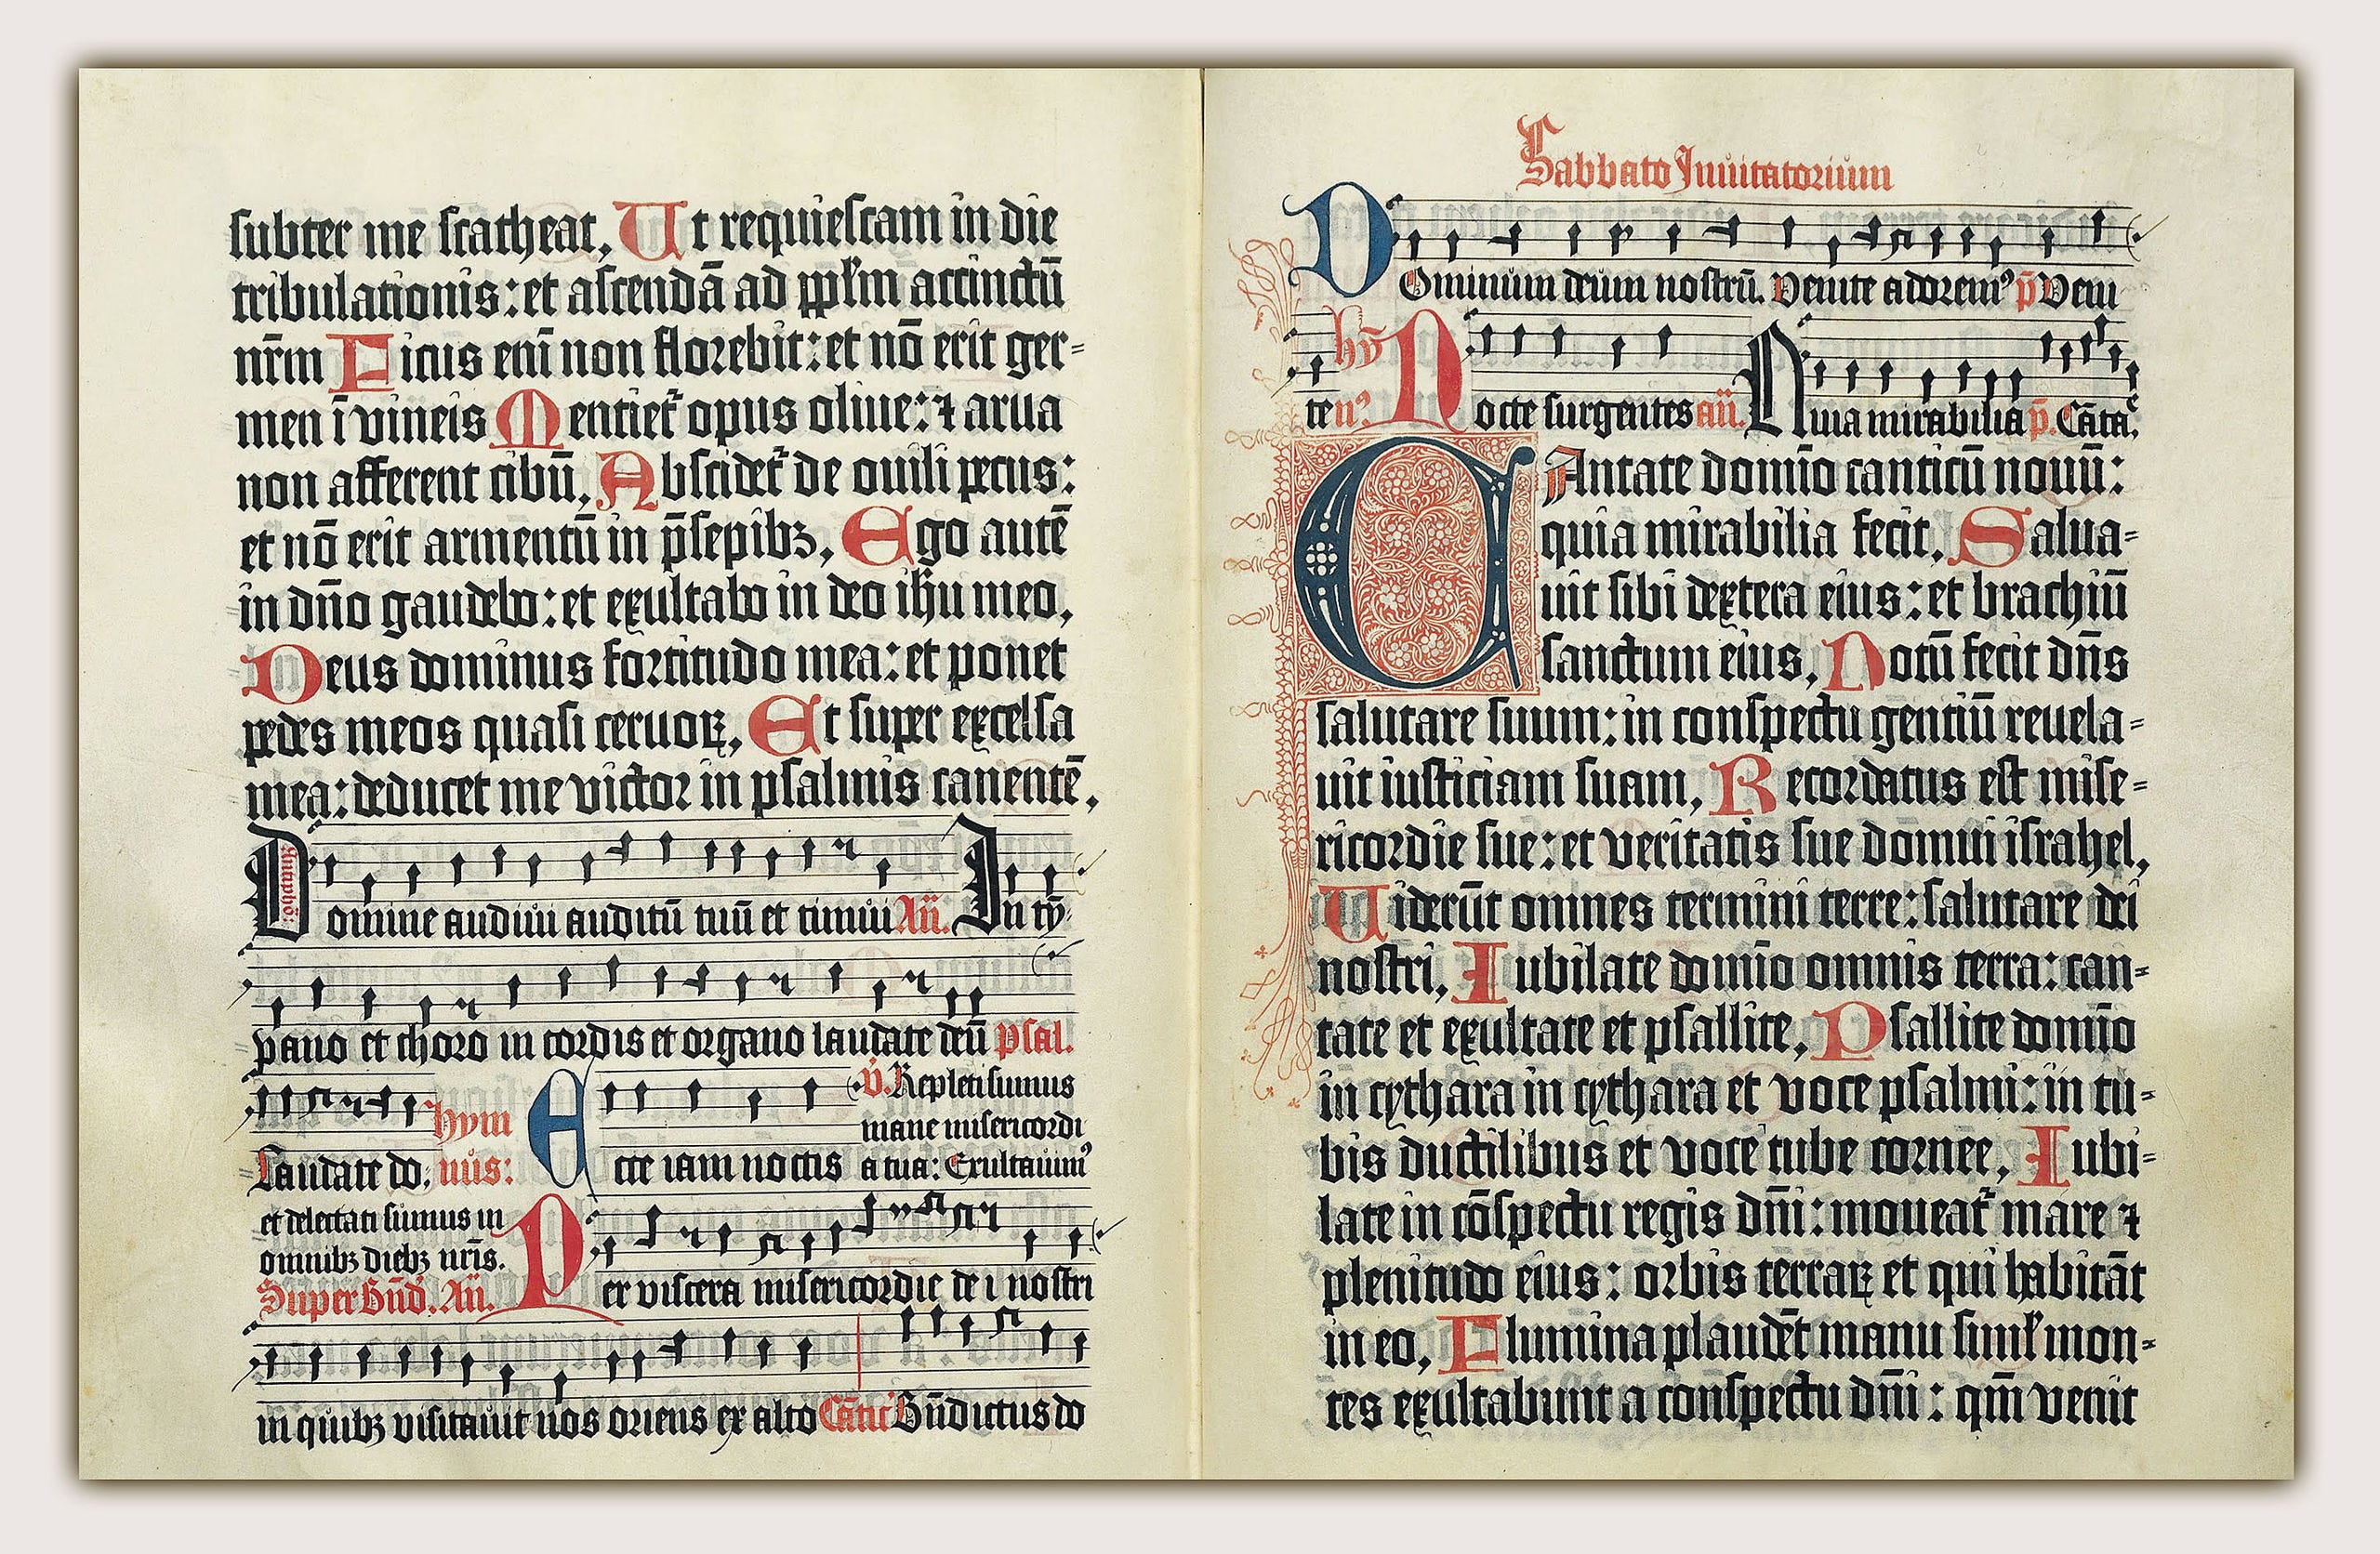 subter me scatheat, Ut requiescam in die
tribulationis: et ascendā ad pplm accinctū
nrm Ficus eni non florebit: et nō erit ger=
men ī vineis Mentiet opus oliue: ⁊ arua
non afferent cibū, Abscidet de ouili pecus:
et nō erit armentū in p̄sepibꝫ, Ego autē
in dn̄o gaudebo: et exultabo in deo ihu meo,
Deus dominus fortitudo mea: et ponet
pedes meos quasi ceruoꝝ, Et super excelsa
mea: deducet me victor in psalmis canentē,
Antipho:
Domine audiui auditū tuū et timui An. In ty
pano et choro in cordis et organo laudate deū psal.
hym
v. Repleti sumus
mane misericordi
Laudate do, nus: Ecce iam noctis a tua: Exultauimꝰ
et delectati sumus in
omnibꝫ diebꝫ nris.
Super bn̄d. An. Per viscera misericordie dei nostri
in quibꝫ visitauit nos oriens ex alto Cātic Bn̄dictus do
Sabbato Inuitatorium
DOminum deum nostrū. Venite adoremꝰ p̄ Veni
hy
te n? Nocte surgentes an. Quia mirabilia p̄. Cāta.
CAntate domīo canticū nouū:
quia mirabilia fecit. Salua=
uit sibi dextera eius: et brachiū
sanctum eius, Notū fecit dn̄s
salutare suum: in conspectu gentiū reuela=
uit iusticiam suam, Recordatus est mise=
ricordie sue: et veritatis sue domui israhel,
Uiderūt omnes termini terre: salutare dei
nostri, Iubilate domīo omnis terra: can=
tate et exultate et psallite, Psallite domīo
in cythara in cythara et voce psalmi: in tu=
bis ductilibus et voce tube cornee, Iubi=
late in cōspectu regis dn̄i: moueat mare ⁊
plenitudo eius: orbis terraꝝ et qui habitāt
in eo, Flumina plaudēt manu siml mon=
tes exultabunt a conspectu dn̄i: qm̄ venit